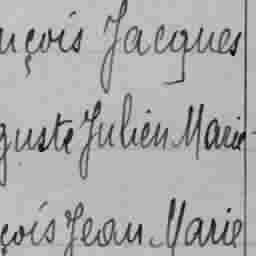 nçois Jacques
guste Julien Marie
çois Jean Marie